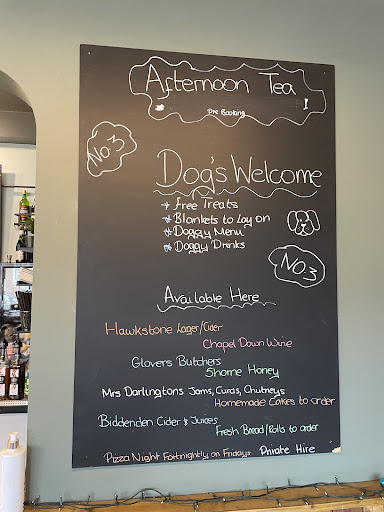 Afternoon Tea
Pre Booking
No.3
Dog's Welcome
Free Treats
Blankets to Lay on
Doggy Menu
Doggy Drinks
No.3
Available Here
Hawkstone Lager/Cider
Chapel Down Wine
Glovers Butchers
Shome Honey
Mrs Darlingtons Jams, Curds, Chutneys
Homemade Cakes to order
Biddenden Cider & Juices
Fresh Bread/Rolls to order
Pizza Night Fortnightly on Fridays Private Hire